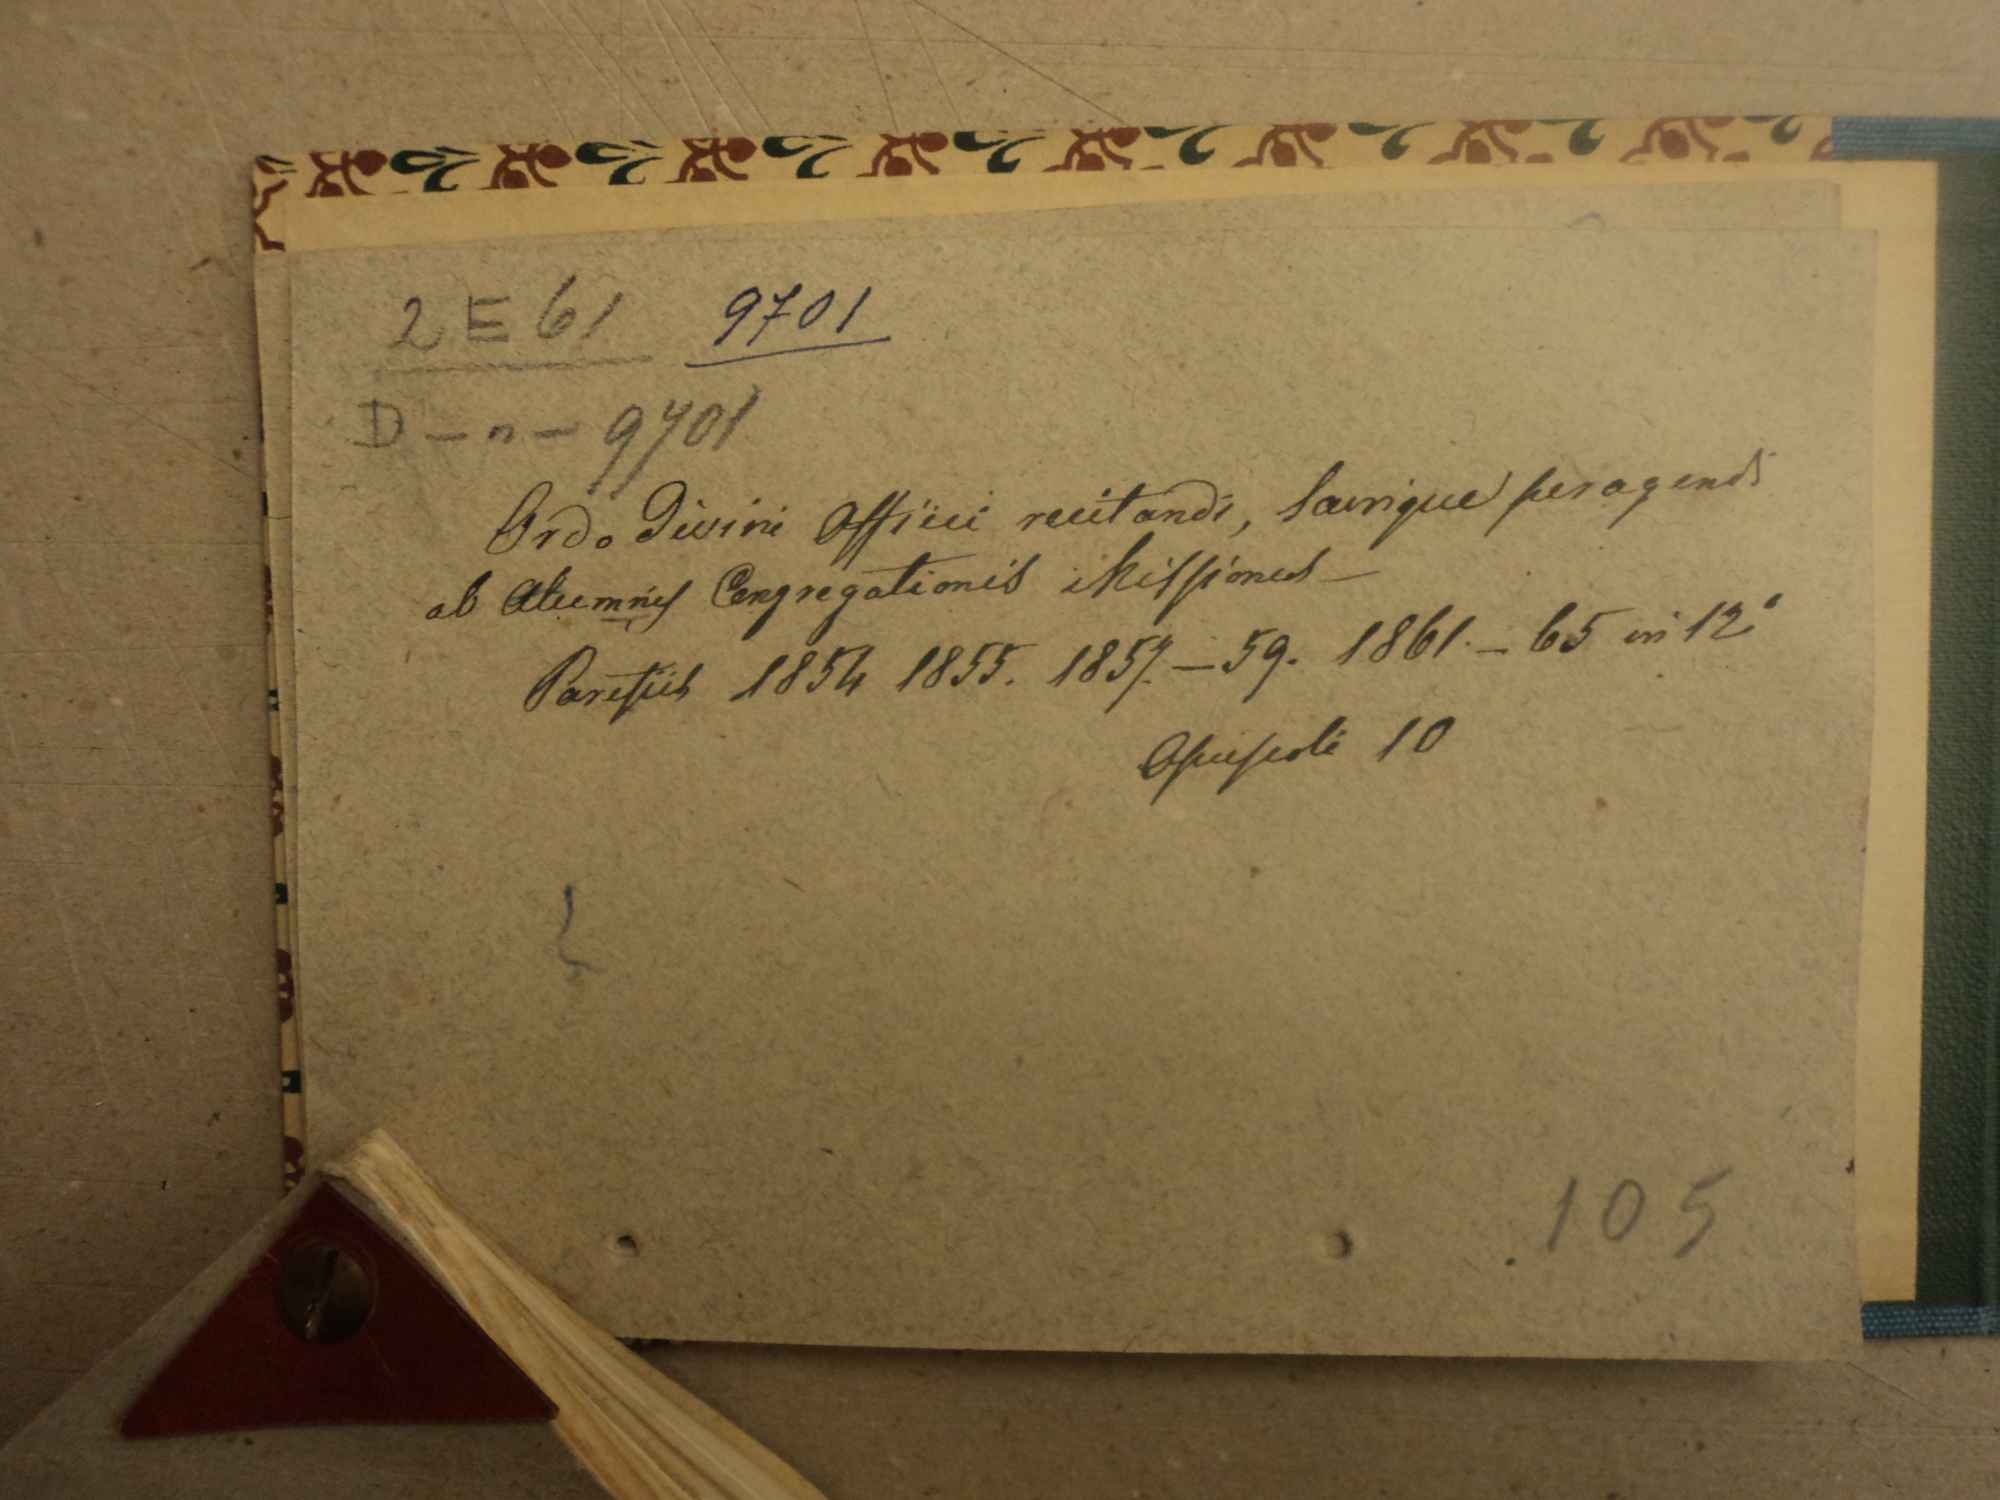 2 E 61 9701
D - n - 9701
Ordo Divini Officii recitandi, Sacrique peragendi
ab Alumnis Congregationis Missionis -
Parisiis 1854 1855. 1857. - 59. 1861. - 65 in 12°
Opuscoli 10
.105